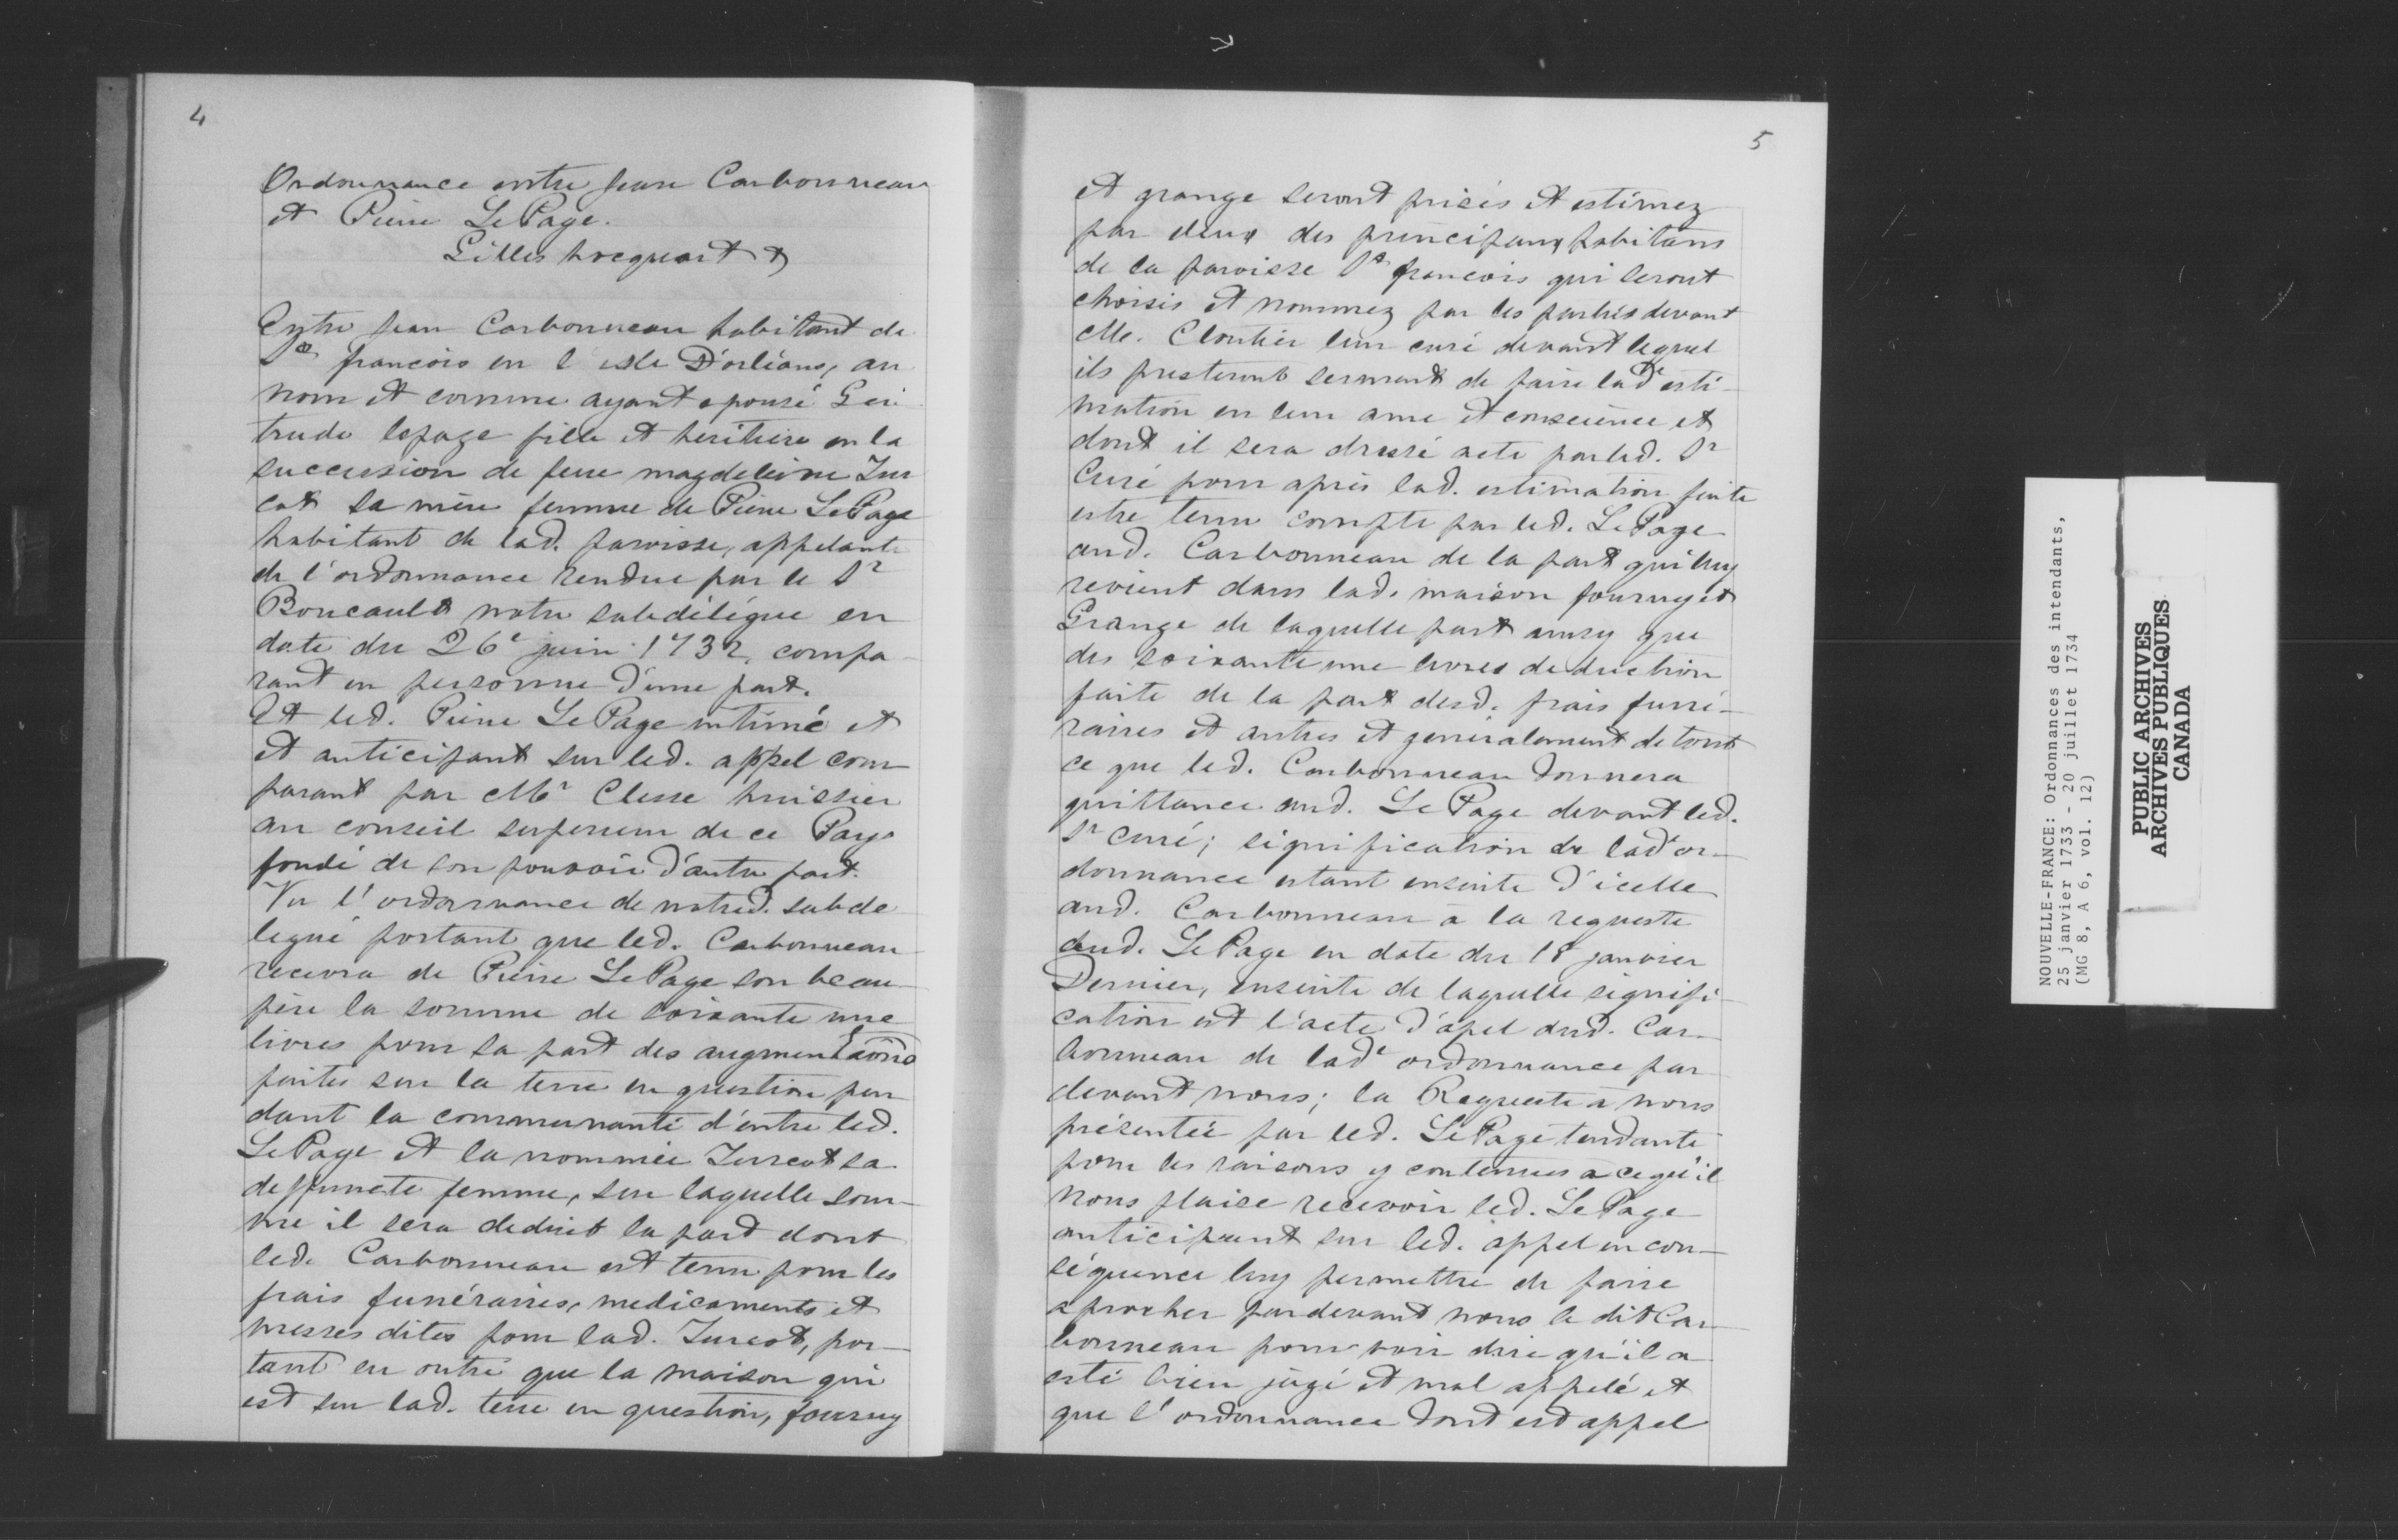 4
Ordonnance entre Jean Carbonneau
et Pierre LePage.
Gilles hocquart &
Entre Jean Carbonneau habitant de
St francois en l'isle D'orléans, au
nom et comme ayant epousé Ger
trude lepage fille et heritiere en la
succession de feue magdeleine Tur
cot sa mère femme de Pierre LePage
habitant de lad. paroisse, appelante
de l'ordonnance rendue par le Sr
Boucault notre subdélégué en
date du 26e juin 1732, compa
rant en personne d'une part.
Et led. Pierre LePage intimé et
et anticipant sur led. appel com
parant par Mr Clesse huissier
au conseil superieur de ce Pays
fondé de son pouvoir d'autre part.
Vu l'ordonnance de notred. subde
legué portant que led. Carbonneau
recevra de Pierre LePage son beau
père la somme de soixante une
livres pour sa part des augmentaons
faites sur la terre en question pen
dant la communauté d'entre led.
LePage et la nommée Turcot sa
deffuncte femme, sur laquelle som-
me il sera deduit la part dont
led. Carbonneau est tenu pour les
frais funéraires, medicaments et
messes dites pour lad. Turcot, por-
tant en outre que la maison qui
est sur lad. terre en question, fourny
5
et grange seront prisés et estimez
par deux des principaux habitans
de la paroisse St francois qui seront
choisis et nommez par les parties devant
Me. Cloutier leur curé devant lequel
ils presteront serment de faire lade esti-
mation en leur ame et conscience et
dont il sera dressé acte par led. Sr
Curé pour après lad. estimation faite
estre tenu compte par led. LePage
aud. Carbonneau de la part qui luy
revient dans lad. maison fourny et
Grange de laquelle part aussy que
des soixante une livres deduction
faite de la part desd. frais funé-
raires et autres et generalement de tout
ce que led. Carbonneau donnera
quittance aud. Le Page devant led.
Sr curé; signification de lade or-
donnance estant ensuite d'icelle
aud. Carbonneau à la requeste
dud. LePage en date du 18 janvier
Dernier, ensuite de laquelle signifi-
cation est l'acte d'apel dud. Car-
bonneau de lade ordonnance par
devant nous; la Requeste à nous
présentée par led. LePage tendante
pour les raisons y contenues à ce qu'il
nous plaise recevoir led. LePage
anticipant sur led. appel en con-
séquence luy permettre de faire
aprocher pardevant nous le dit Car-
bonneau pour voir dire qu'il a
esté bien jugé et mal appelé et
que l'ordonnance dont est appel
NOUVELLE-FRANCE: Ordonnances des intendants,
25 janvier 1733 - 20 juillet 1734
(MG 8, A 6, vol. 12)
PUBLIC ARCHIVES
ARCHIVES PUBLIQUES
CANADA